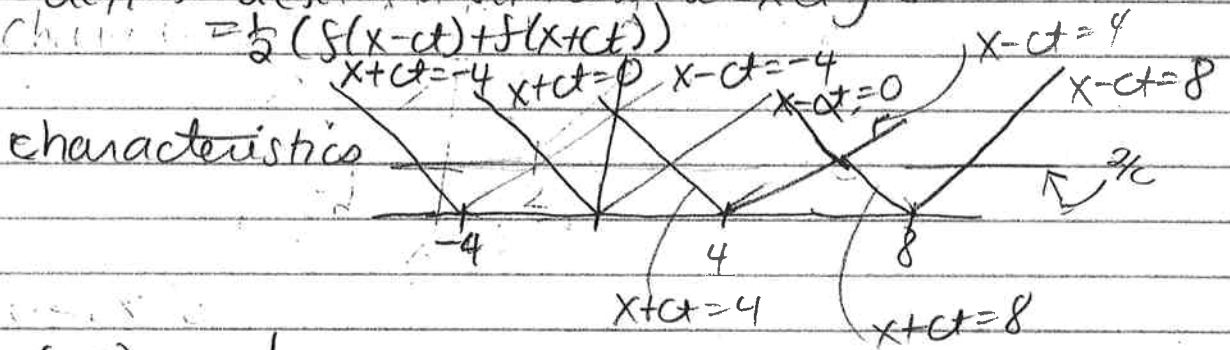 = ½ (f(x-ct)+f(x+ct))
x-ct=4
x+ct=-4 x+ct=0 x-ct=-4 x-ct=0 x-ct=8
characteristics 2/c
-4 4 8
x+ct=4 x+ct=8